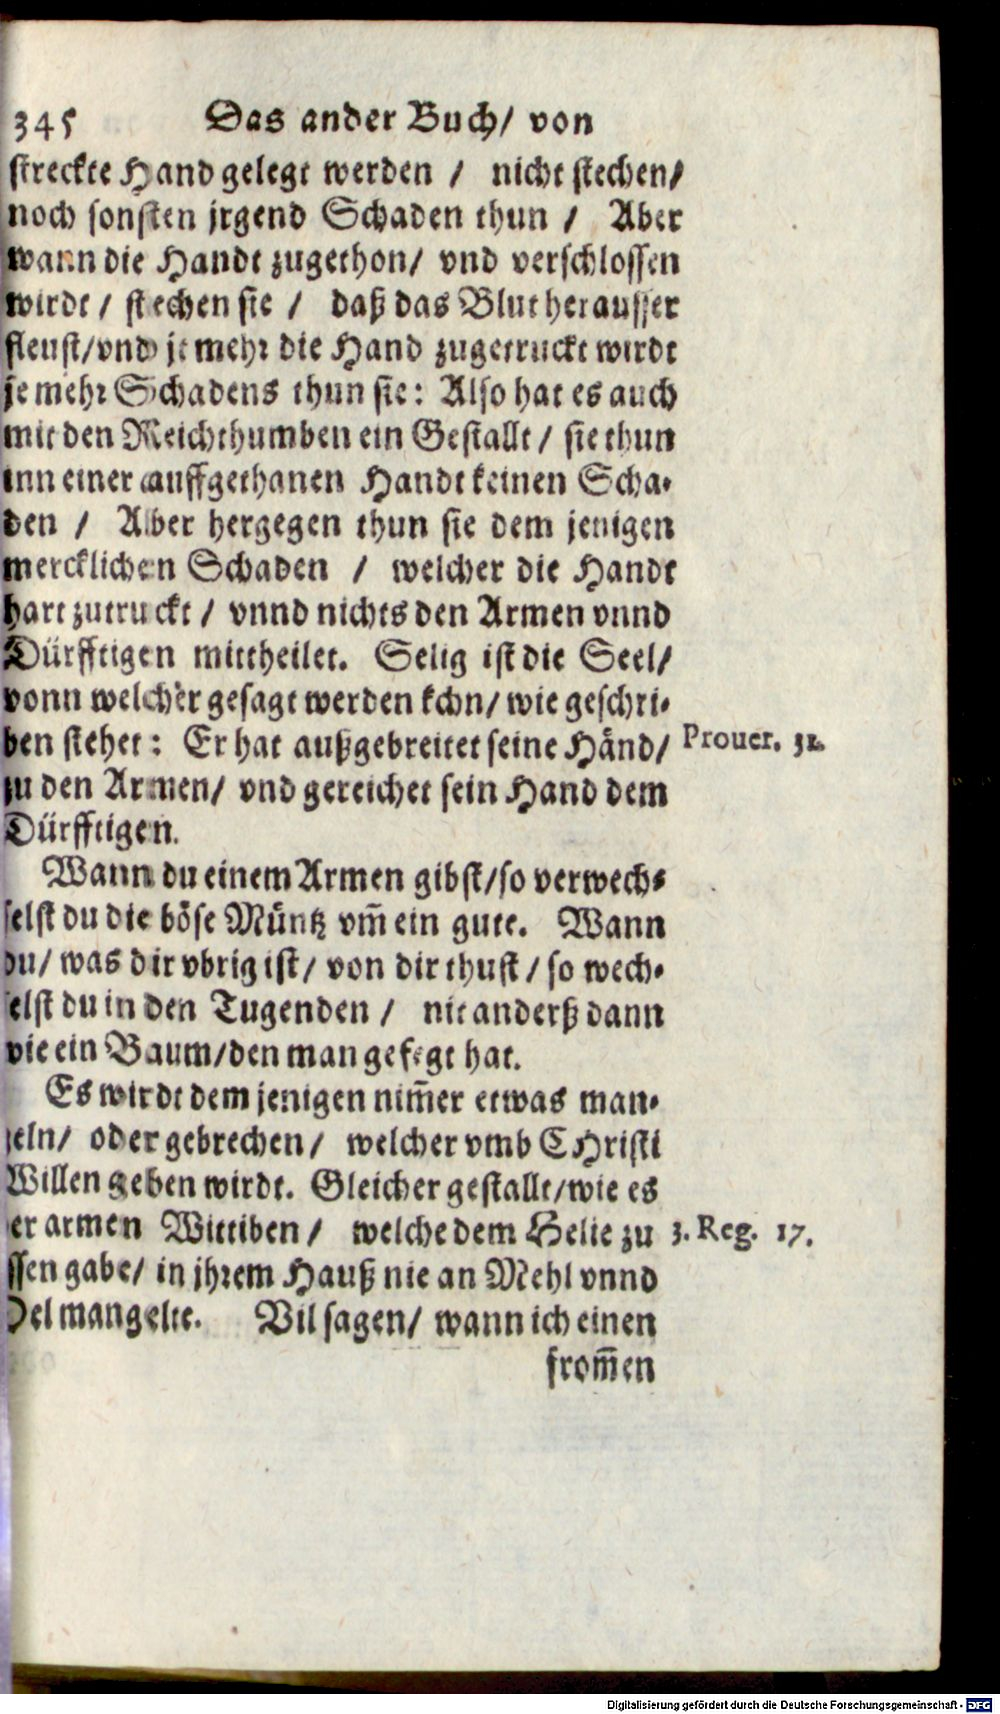 345 Das ander Buch/ von
streckte Hand gelegt werden / nicht stechen/
noch sonsten jrgend Schaden thun / Aber
wann die Handt zugethon/ vnd verschlossen
wirdt / stechen sie / daß das Blut herausser
fleust/vnd je mehr die Hand zugetruckt wirdt
je mehr Schadens thun sie: Also hat es auch
mit den Reichthumben ein Gestallt / sie thun
inn einer auffgethanen Handt keinen Scha-
den / Aber hergegen thun sie dem jenigen
mercklichen Schaden / welcher die Handt
hart zutruckt / vnnd nichts den Armen vnnd
Dürfftigen mittheilet. Selig ist die Seel/
vonn welcher gesagt werden kchn/ wie geschri-
ben stehet: Er hat außgebreitet seine Händ/ Prouer. 31.
zu den Armen/ vnd gereichet sein Hand dem
Dürfftigen.
Wann du einem Armen gibst/so verwech-
selst du die böse Müntz vm̃ ein gute. Wann
du/ was dir vbrig ist/ von dir thust / so wech-
selst du in den Tugenden / nit anderß dann
wie ein Baum/den man gefegt hat.
Es wirdt dem jenigen nim̃er etwas man-
geln/ oder gebrechen/ welcher vmb CHristi
Willen geben wirdt. Gleicher gestallt/wie es
er armen Wittiben / welche dem Helie zu 3. Reg. 17.
ssen gabe/ in jhrem Hauß nie an Mehl vnnd
Oel mangelte. Vil sagen/ wann ich einen
from̃en
Digitalisierung gefördert durch die Deutsche Forschungsgemeinschaft - DFG